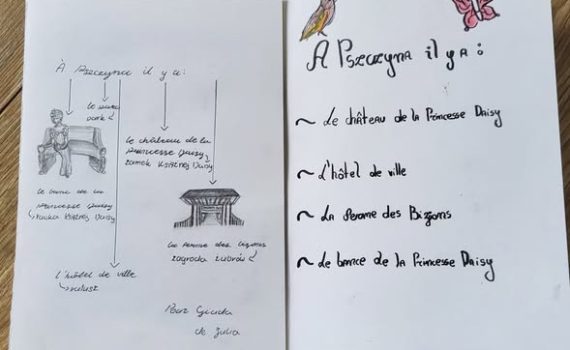 À Pszczyna il y a:
le
park
le château de la
Princesse Daisy
zamek Księżnej Daisy
le banc de la
princesse Daisy
ławka Księżnej Daisy
zagroda żubrów
l'hôtel de ville
ratusz
de Julia
A Pszczyna il y a:
~ Le château de la Princesse Daisy
~ L'hôtel de ville
~ La ferame des Bizgons
~ Le bance de la Princesse Daisy